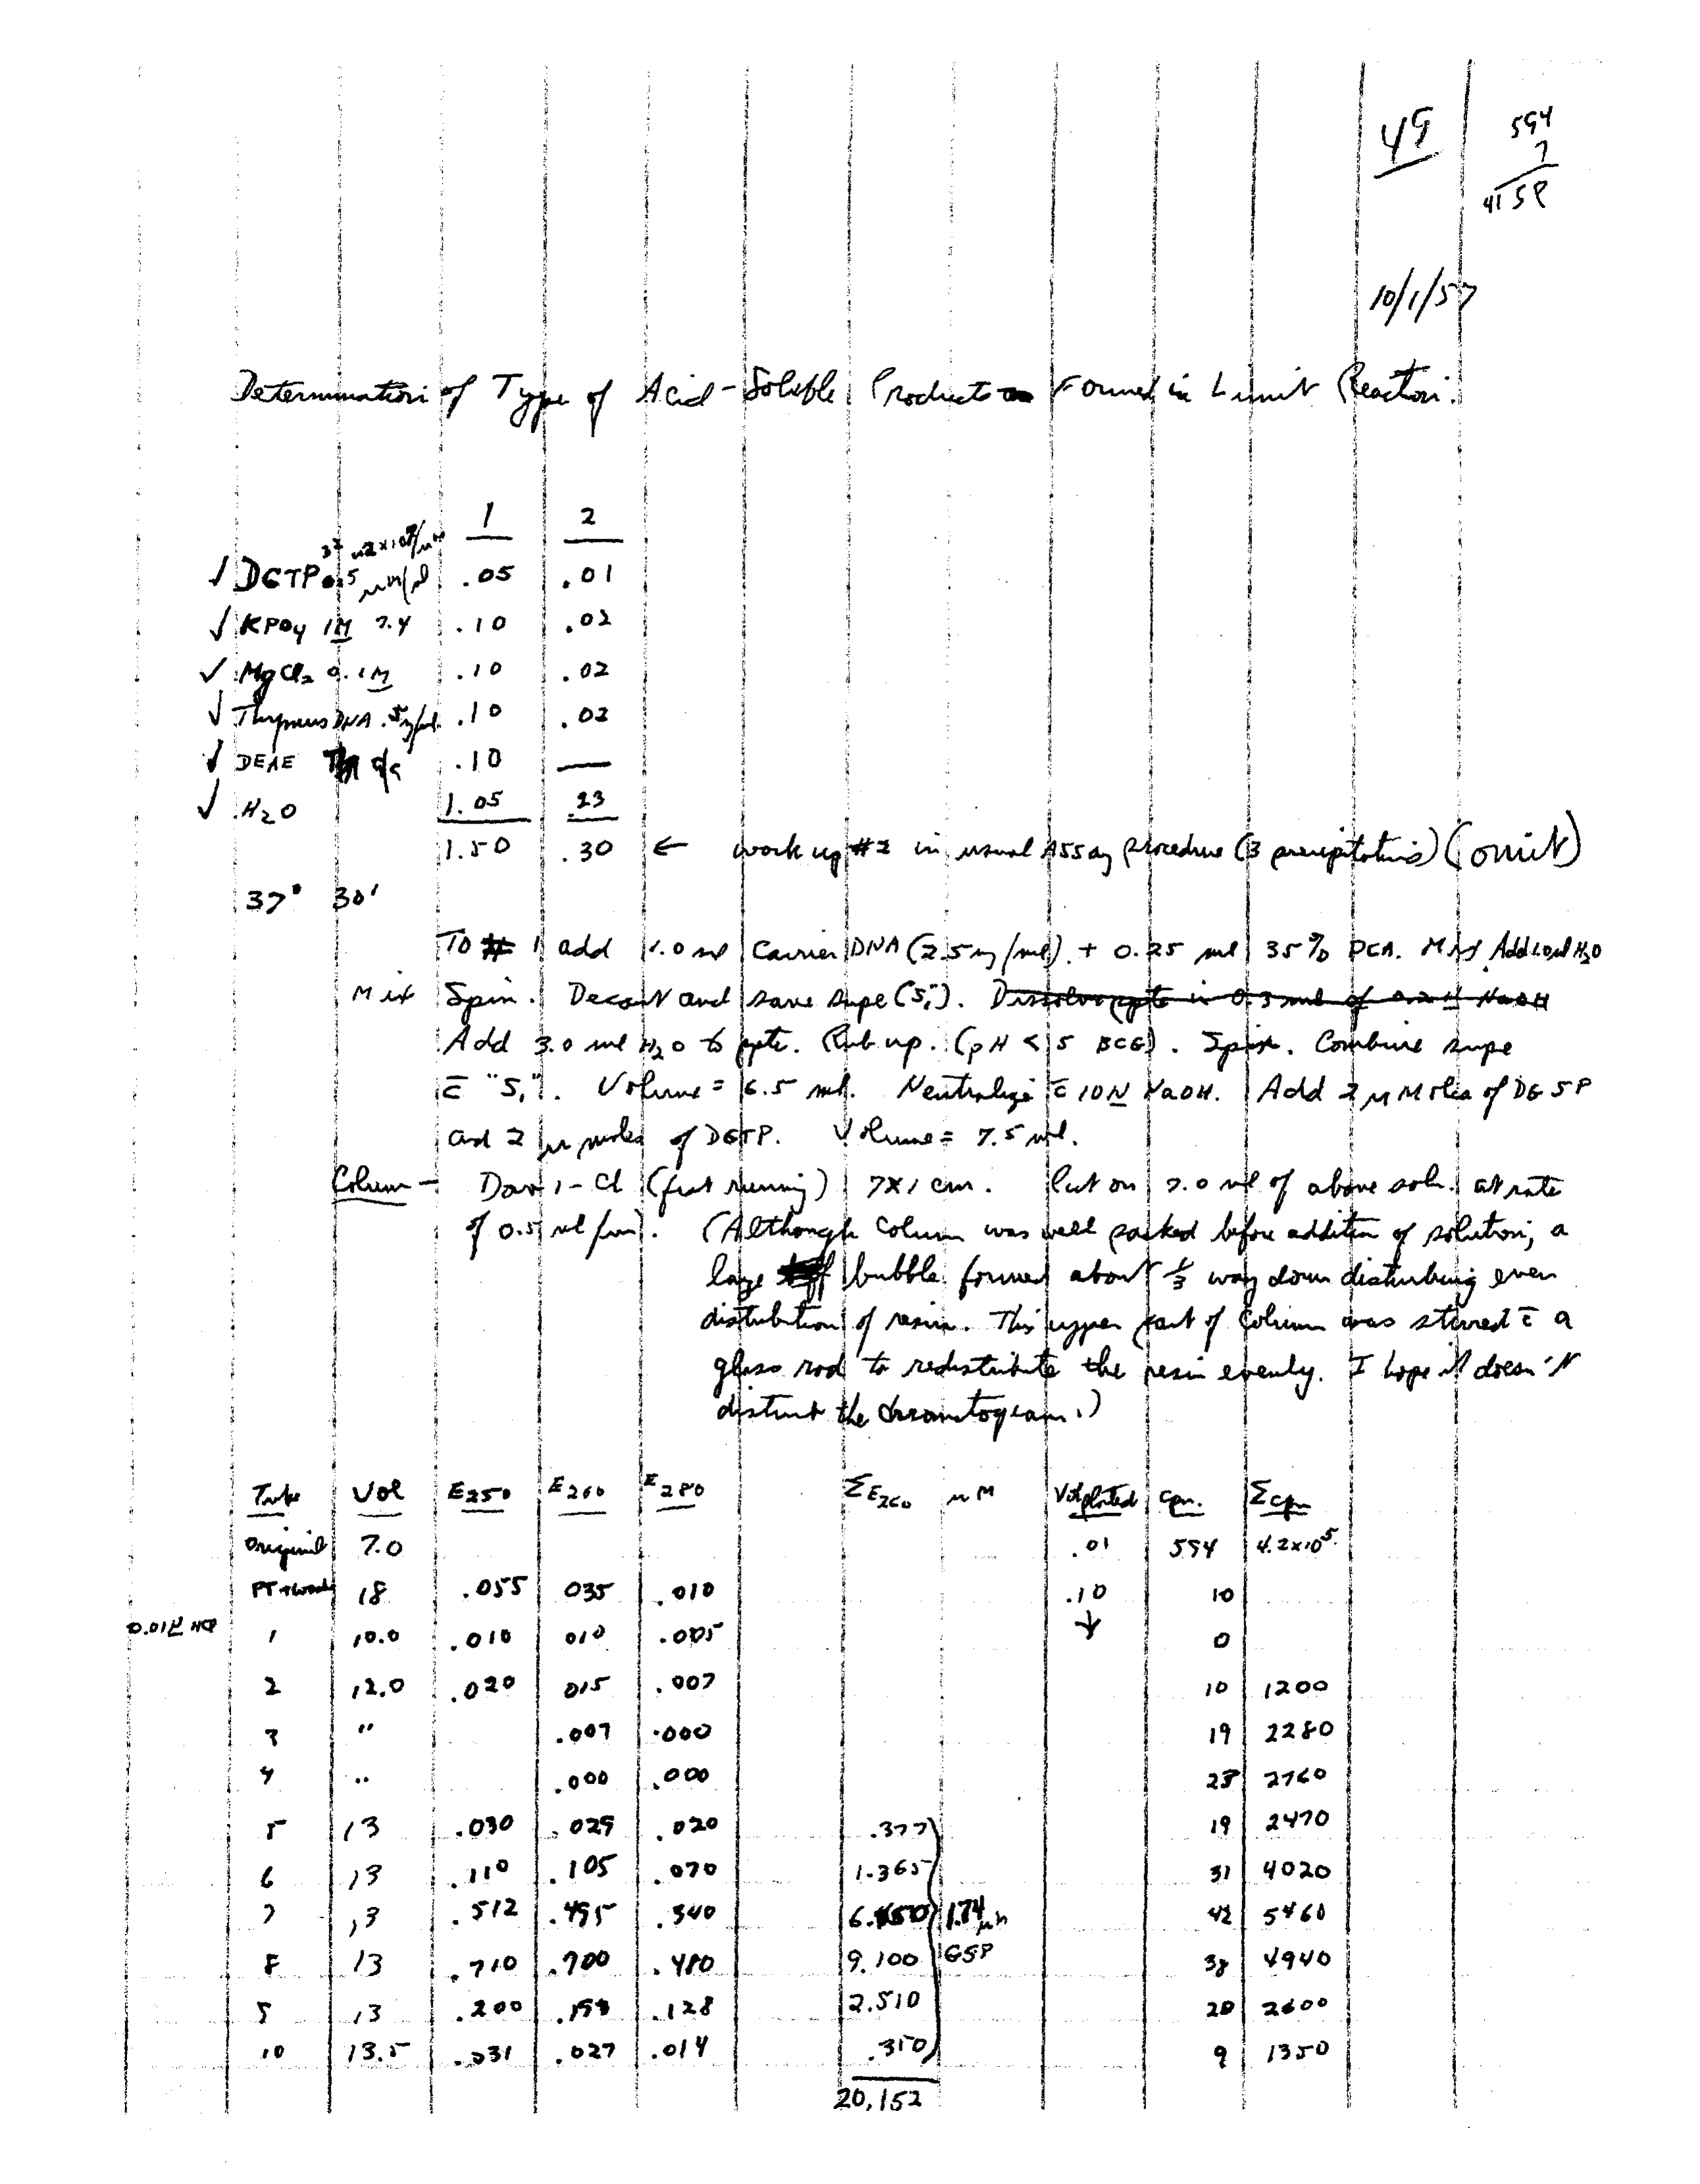 49
594
7
4158
10/1/57
Determination of Type of Acid-Soluble Products Formed in Limit Reaction.
1 2
✓ DGTP 0.5 .05 .01
✓ KPO4 1M 7.4 .10 .02
✓ MgCl2 0.1M .10 .02
✓ Thymus DNA .5mg/ml .10 .02
✓ DEAE .10 —
✓ H2O 1.05 .23
1.50 .30 ← work up #2 in usual Assay procedure (3 precipitations) (omit)
37° 30'
To # 1 add 1.0 ml Carrier DNA (2.5 mg/ml) + 0.25 ml 35% PCA. Mix Add 1.0 ml H2O
Mix Spin. Decant and save supe (S1). Dissolve ppte in 0.3 ml of 0.2N NaOH
Add 3.0 ml H2O to ppte. Rub up. (pH < 5 BCG). Spin. Combine supe
c̄ "S1". Volume = 6.5 ml. Neutralize c̄ 10N NaOH. Add 2 μMoles of DG5P
and 2 μmoles of DGTP. Volume = 7.5 ml.
Column - Dow 1-Cl (fast running) 7x1 cm. Put on 7.0 ml of above soln. at rate
of 0.5 ml/min. (Although column was well packed before addition of solution, a
large bubble formed about 1/3 way down disturbing even
distribution of resin. This upper part of column was stirred c̄ a
glass rod to redistribute the resin evenly. I hope it doesn't
disturb the chromatogram.)
Tube Vol E250 E260 E280 ΣE260 μM Vol plated cpm. Σcpm
Original 7.0 .01 594 4.2x10⁵
PT + wash 18 .055 035 .010 .10 10
0.01N HCl 1 10.0 .010 010 .005 ↓ 0
2 12.0 .020 015 .007 10 1200
3 " .007 .000 19 2280
4 " .000 .000 23 2760
5 13 .030 .029 .020 .377 19 2470
6 13 .110 .105 .070 1.365 31 4020
7 13 .512 .495 .340 6.450 1.74 μM 42 5460
8 13 .710 .700 .480 9.100 G5P 38 4940
9 13 .200 .193 .128 2.510 20 2600
10 13.5 .031 .027 .014 .350 9 1350
20,152